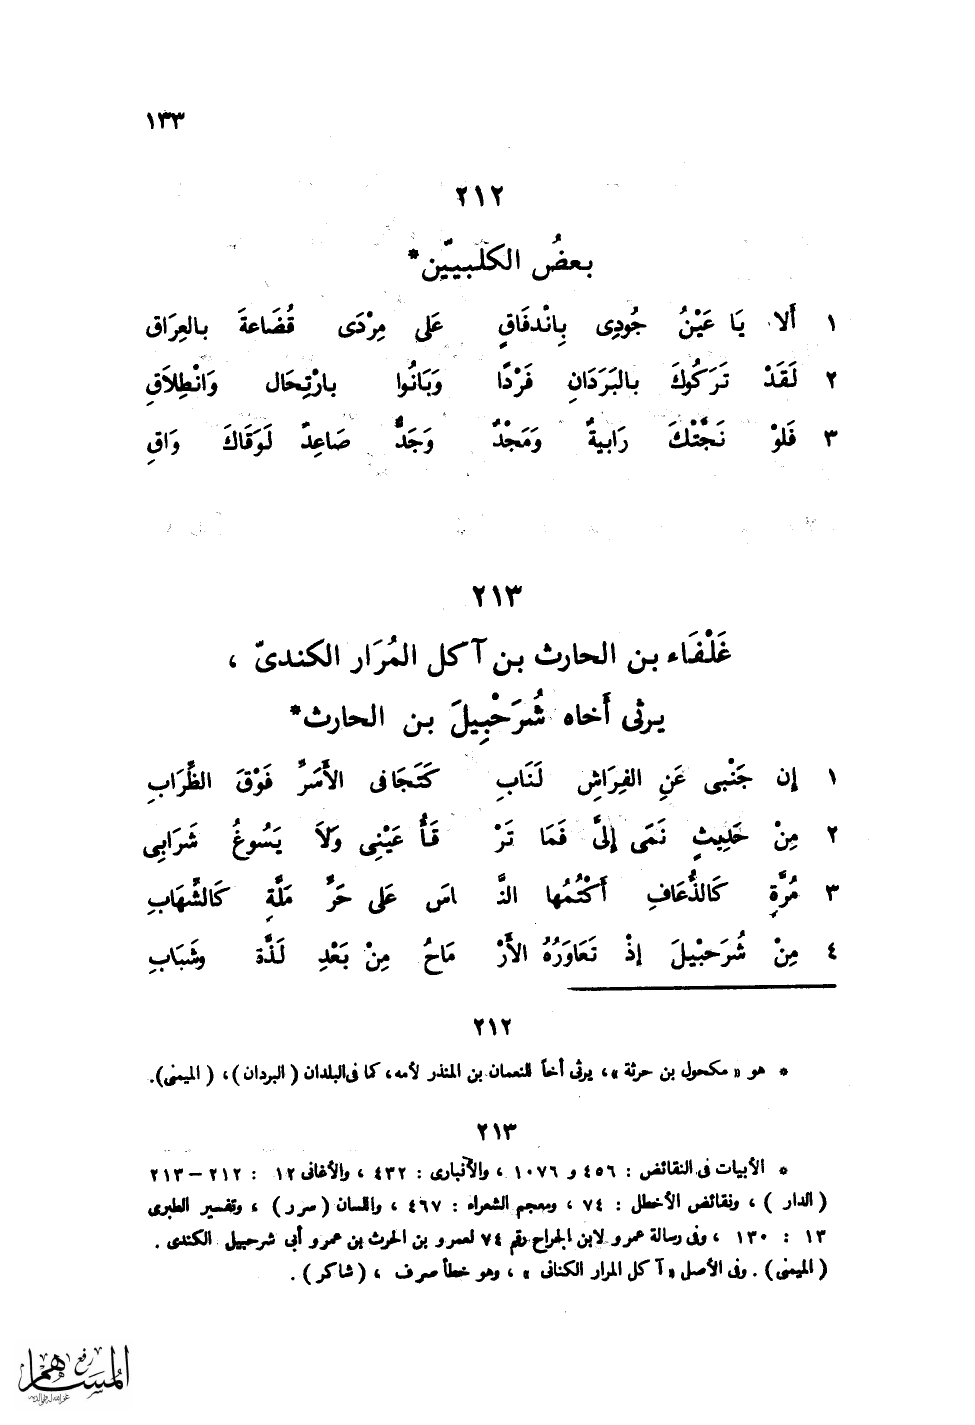 ١٣٣
٢١٢
بعضُ الكلبيّين*
١ أَلا يَا عَيْنُ جُودِى بِانْدفَاقٍ عَلَى مِرْدَى قُضَاعةَ بالعِرَاق
٢ لَقَدْ تَرَكُوكَ بالبَرَدَانِ فَرْدًا وَبَانُوا بارْتِحَال وَانْطِلاَقِ
٣ فَلَوْ نَجَّتْكَ رَابيةٌ وَمَجْدٌ وَجَدٌّ صَاعِدٌ لَوَقَاكَ وَاقِ
٢١٣
غَلْفَاء بن الحارث بن آكل المُرَار الكندىّ ،
يرثى أَخاه شُرَحْبِيلَ بن الحارث*
١ إِن جَنْبى عَنِ الفِرَاشِ لَنَابِ كَتَجَافى الأَسَرِّ فَوْقَ الظِّرَابِ
٢ مِنْ حَدِيثٍ نَمَى إِلىَّ فَمَا تَرْ قَأُ عَيْنِى وَلاَ يَسُوغُ شَرَابِى
٣ مُرَّةٍ كَالذُّعَافِ أَكْتُمُها النَّ اسَ عَلَى حَرِّ مَلَّةٍ كَالشِّهَابِ
٤ مِنْ شُرَحبْيلَ إِذْ تَعَاوَرُهُ الأَرْ مَاحُ مِنْ بَعْدِ لَذَّة وشَبَابِ
٢١٢
* هو « مكحول بن حرثة » ، يرثى أخاً للنعمان بن المنذر لأمه ، كما فى البلدان ( البردان ) ، ( الميمنى ) .
٢١٣
* الأبيات فى النقائض : ٤٥٦ و ١٠٧٦ ، والأنبارى : ٤٣٢ ، والأغانى ١٢ : ٢١٢ – ٢١٣
( الدار ) ، ونقائض الأخطل : ٧٤ ، ومعجم الشعراء : ٤٦٧ ، واللسان ( سرر ) ، وتفسير الطبرى
١٣ : ١٣٠ ، وفى رسالة عمرو لابن الجراح رقم ٧٤ لعمرو بن الحرث بن عمرو أبى شرحبيل الكندى .
( الميمنى ) . وفى الأصل « آكل المرار الكنانى » ، وهو خطأ صرف ، ( شاكر ) .